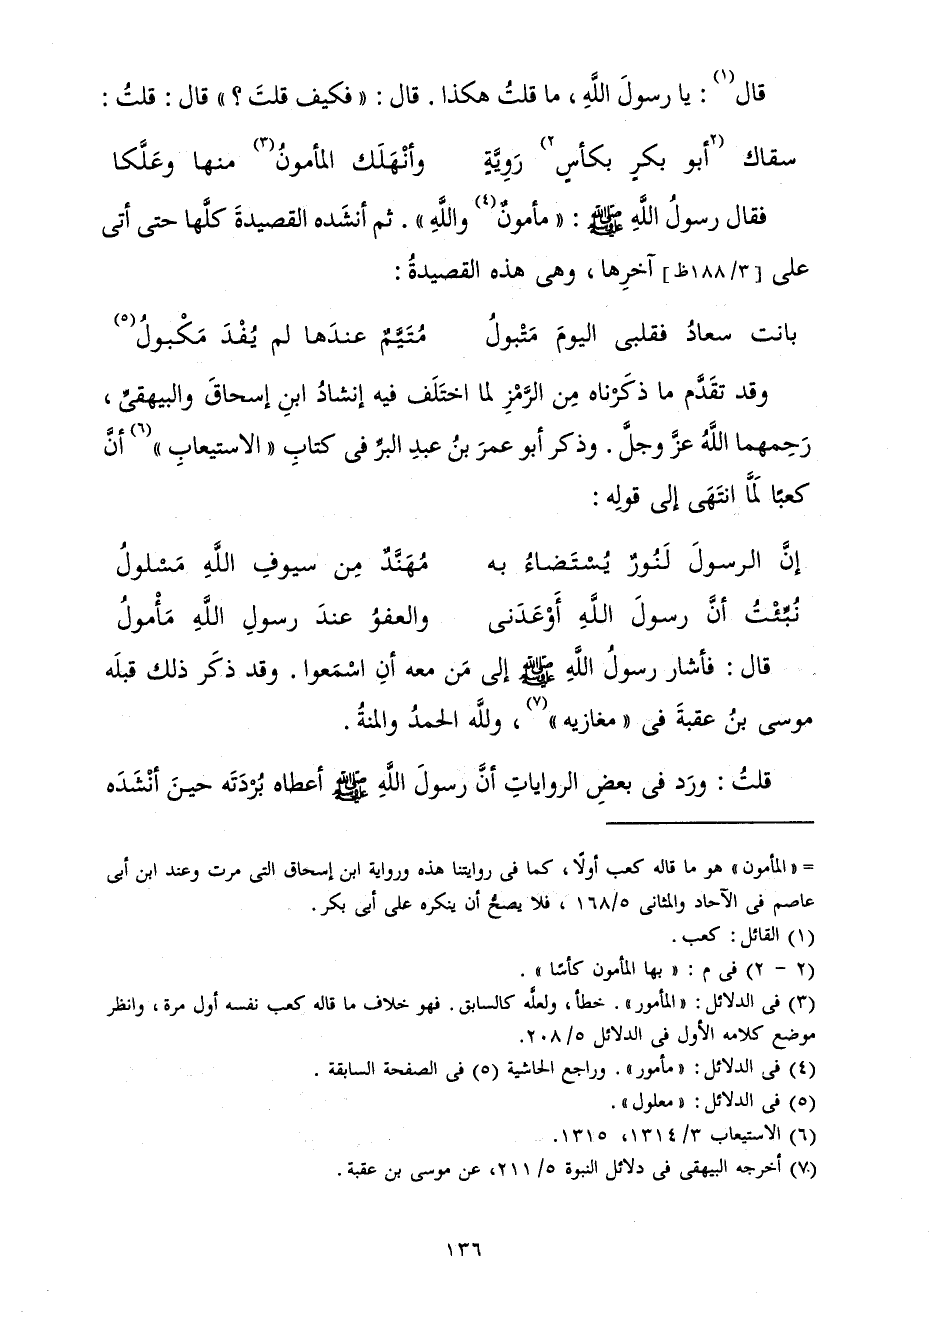 قال(١) : يا رسولَ اللَّهِ ، ما قلتُ هكذا . قال : « فكيف قلتَ ؟ » قال : قلتُ :
سقاك (٢أبو بكرٍ بكأسٍ٢) رَوِيَّةٍ وأنْهَلَك المأمونُ(٣) منها وعَلَّكا
فقال رسولُ اللَّهِ ﷺ : « مأمونٌ(٤) واللَّهِ » . ثم أنشَده القصيدةَ كلَّها حتى أتى
على [ ٣/ ١٨٨ظ] آخرِها ، وهى هذه القصيدةُ :
بانت سعادُ فقلبى اليومَ مَتْبولُ مُتَيَّمٌ عندَها لم يُفْدَ مَكْبولُ(٥)
وقد تقَدَّم ما ذكَرْناه مِن الرَّمْزِ لما اختَلَف فيه إنشادُ ابنِ إسحاقَ والبيهقىِّ ،
رَحِمهما اللَّهُ عزَّ وجلَّ . وذكر أبو عمرَ بنُ عبدِ البرِّ فى كتابِ « الاستيعابِ »(٦) أنَّ
كعبًا لَمَّا انتَهَى إلى قولِه :
إنَّ الرسولَ لَنُورٌ يُسْتَضاءُ به مُهَنَّدٌ مِن سيوفِ اللَّهِ مَسْلولُ
نُبِّئْتُ أنَّ رسولَ اللَّهِ أَوْعَدَنى والعفوُ عندَ رسولِ اللَّهِ مَأْمولُ
قال : فأشار رسولُ اللَّهِ ﷺ إلى مَن معه أنِ اسْمَعوا . وقد ذكَر ذلك قبلَه
موسى بنُ عقبةَ فى « مغازيه »(٧) ، وللَّه الحمدُ والمنةُ .
قلتُ : ورَد فى بعضِ الرواياتِ أنَّ رسولَ اللَّهِ ﷺ أعطاه بُرْدَتَه حينَ أنْشَدَه
= «المأمون» هو ما قاله كعب أولًا ، كما فى روايتنا هذه ورواية ابن إسحاق التى مرت وعند ابن أبى
عاصم فى الآحاد والمثانى ٥/ ١٦٨ ، فلا يصحُّ أن ينكره على أبى بكر.
(١) القائل : كعب .
(٢ - ٢) فى م : « بها المأمون كأسًا » .
(٣) فى الدلائل : «المأمور» . خطأ ، ولعلَّه كالسابق . فهو خلاف ما قاله كعب نفسه أول مرة ، وانظر
موضع كلامه الأول فى الدلائل ٥/ ٢٠٨.
(٤) فى الدلائل : «مأمور» . وراجع الحاشية (٥) فى الصفحة السابقة .
(٥) فى الدلائل : «معلول» .
(٦) الاستيعاب ٣/ ١٣١٤، ١٣١٥.
(٧) أخرجه البيهقى فى دلائل النبوة ٥/ ٢١١، عن موسى بن عقبة .
١٣٦